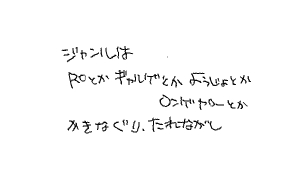 ジャンルは
ROとか ギャルゲとか ようじょとか
ロンゲヤローとか
かきなぐり、たれながし